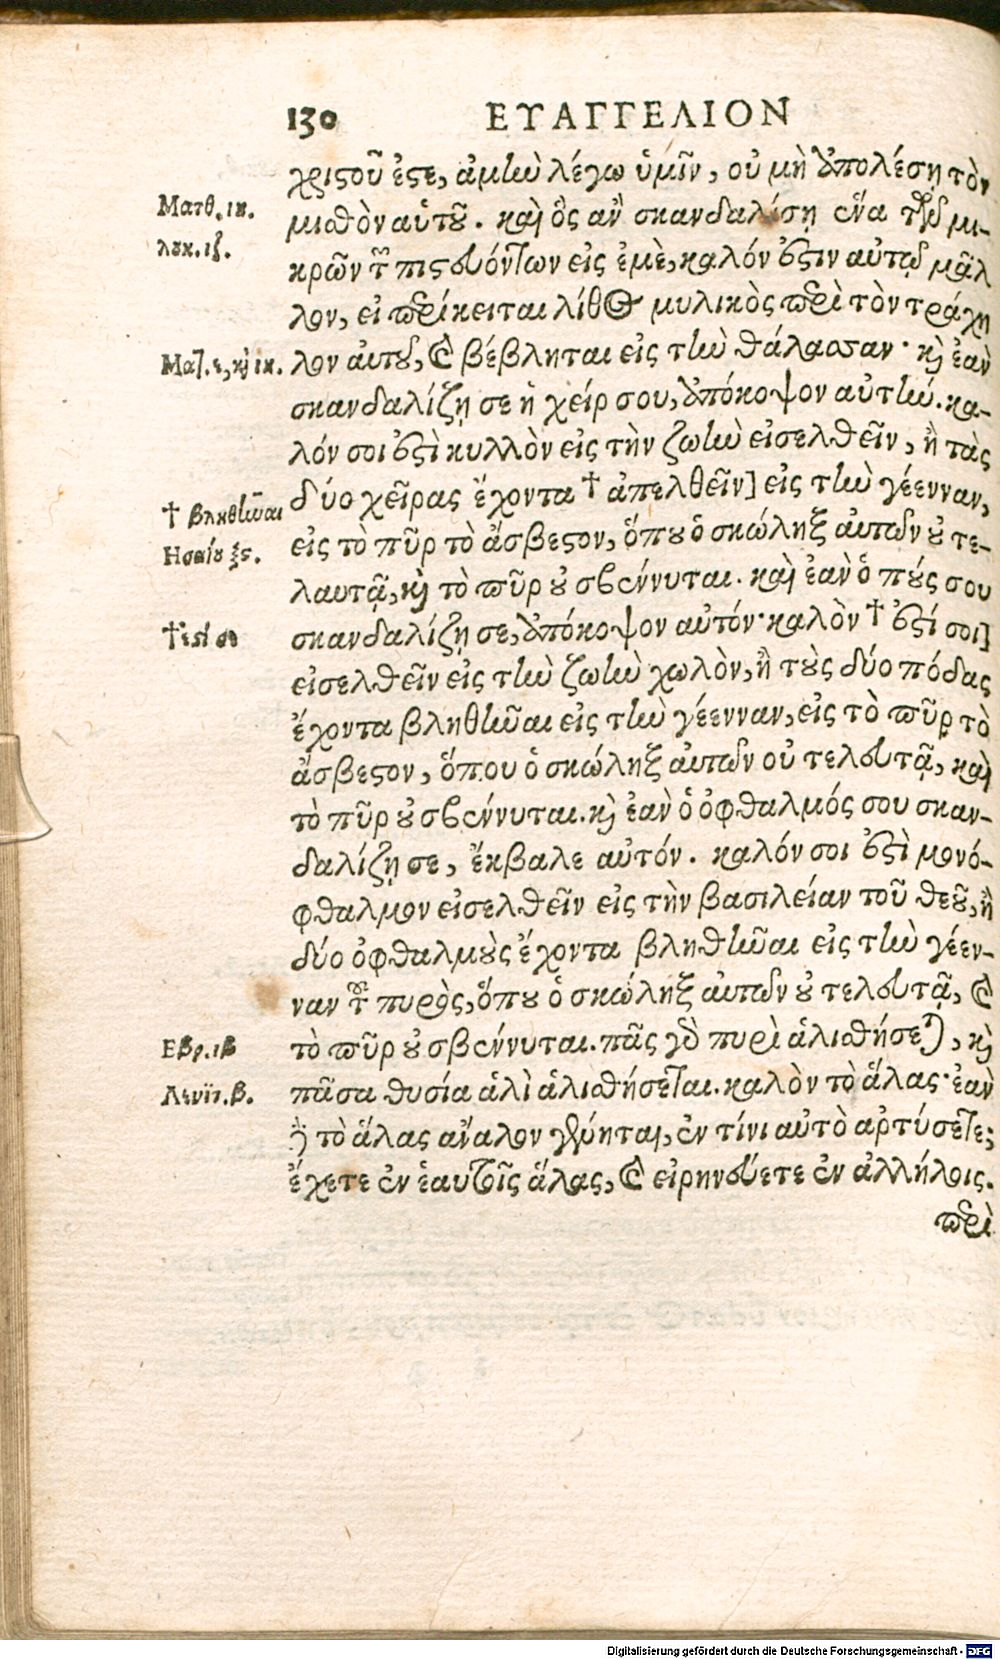 130 ΕΥΑΓΓΕΛΙΟΝ
χριστοῦ ἐστε, ἀμὴν λέγω ὑμῖν, οὐ μὴ ἀπολέσῃ τὸν
Ματθ. ιη.
μισθὸν αὑτοῦ. καὶ ὃς ἂν σκανδαλίσῃ ἕνα τῶν μι-
λουκ. ιζ.
κρῶν τῶν πιστευόντων εἰς ἐμὲ, καλόν ἐστιν αὐτῷ μᾶλ
λον, εἰ περίκειται λίθος μυλικὸς περὶ τὸν τράχη
Ματ. ε, καὶ ιη.
λον αὐτοῦ, καὶ βέβληται εἰς τὴν θάλασσαν· καὶ ἐὰν
σκανδαλίζῃ σε ἡ χείρ σου, ἀπόκοψον αὐτήν. κα-
λόν σοι ἐστὶ κυλλὸν εἰς τὴν ζωὴν εἰσελθεῖν, ἢ τὰς
δύο χεῖρας ἔχοντα † ἀπελθεῖν] εἰς τὴν γέενναν,
† βληθῆναι
εἰς τὸ πῦρ τὸ ἄσβεστον, ὅπου ὁ σκώληξ αὐτῶν οὐ τε-
Ησαίου ξϛ.
λευτᾷ, καὶ τὸ πῦρ οὐ σβέννυται. καὶ ἐὰν ὁ πούς σου
σκανδαλίζῃ σε, ἀπόκοψον αὐτόν· καλὸν † ἐστί σοι]
† ἐστί σε
εἰσελθεῖν εἰς τὴν ζωὴν χωλὸν, ἢ τοὺς δύο πόδας
ἔχοντα βληθῆναι εἰς τὴν γέενναν, εἰς τὸ πῦρ τὸ
ἄσβεστον, ὅπου ὁ σκώληξ αὐτῶν οὐ τελευτᾷ, καὶ
τὸ πῦρ οὐ σβέννυται. καὶ ἐὰν ὁ ὀφθαλμός σου σκαν-
δαλίζῃ σε, ἔκβαλε αὐτόν. καλόν σοι ἐστὶ μονό-
φθαλμον εἰσελθεῖν εἰς τὴν βασιλείαν τοῦ θεοῦ, ἢ
δύο ὀφθαλμοὺς ἔχοντα βληθῆναι εἰς τὴν γέεν-
ναν τοῦ πυρὸς, ὅπου ὁ σκώληξ αὐτῶν οὐ τελευτᾷ, καὶ
τὸ πῦρ οὐ σβέννυται. πᾶς γὰρ πυρὶ ἁλισθήσεται, καὶ
Εβρ. ιβ
πᾶσα θυσία ἁλὶ ἁλισθήσεται. καλὸν τὸ ἅλας· ἐὰν
Λευϊτ. β.
δὲ τὸ ἅλας ἄναλον γένηται, ἐν τίνι αὐτὸ ἀρτύσετε;
ἔχετε ἐν ἑαυτοῖς ἅλας, καὶ εἰρηνεύετε ἐν ἀλλήλοις.
περὶ
Digitalisierung gefördert durch die Deutsche Forschungsgemeinschaft - DFG